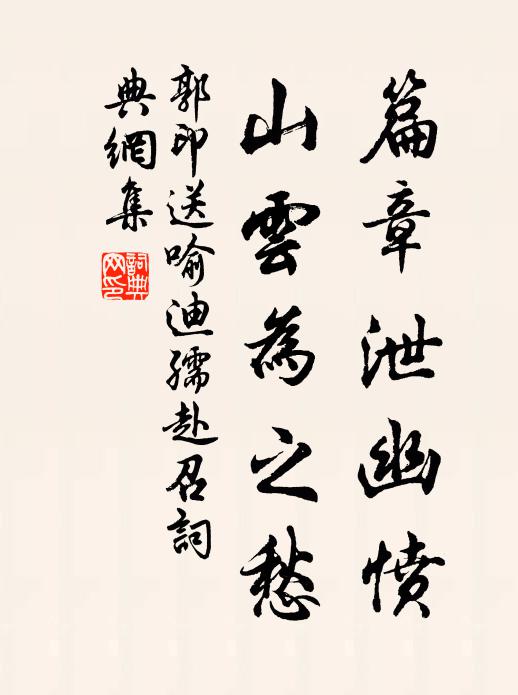 篇章泄幽憤
山雲為之愁
郭印送喻迪孺赴召詞
典網集
詞典网印